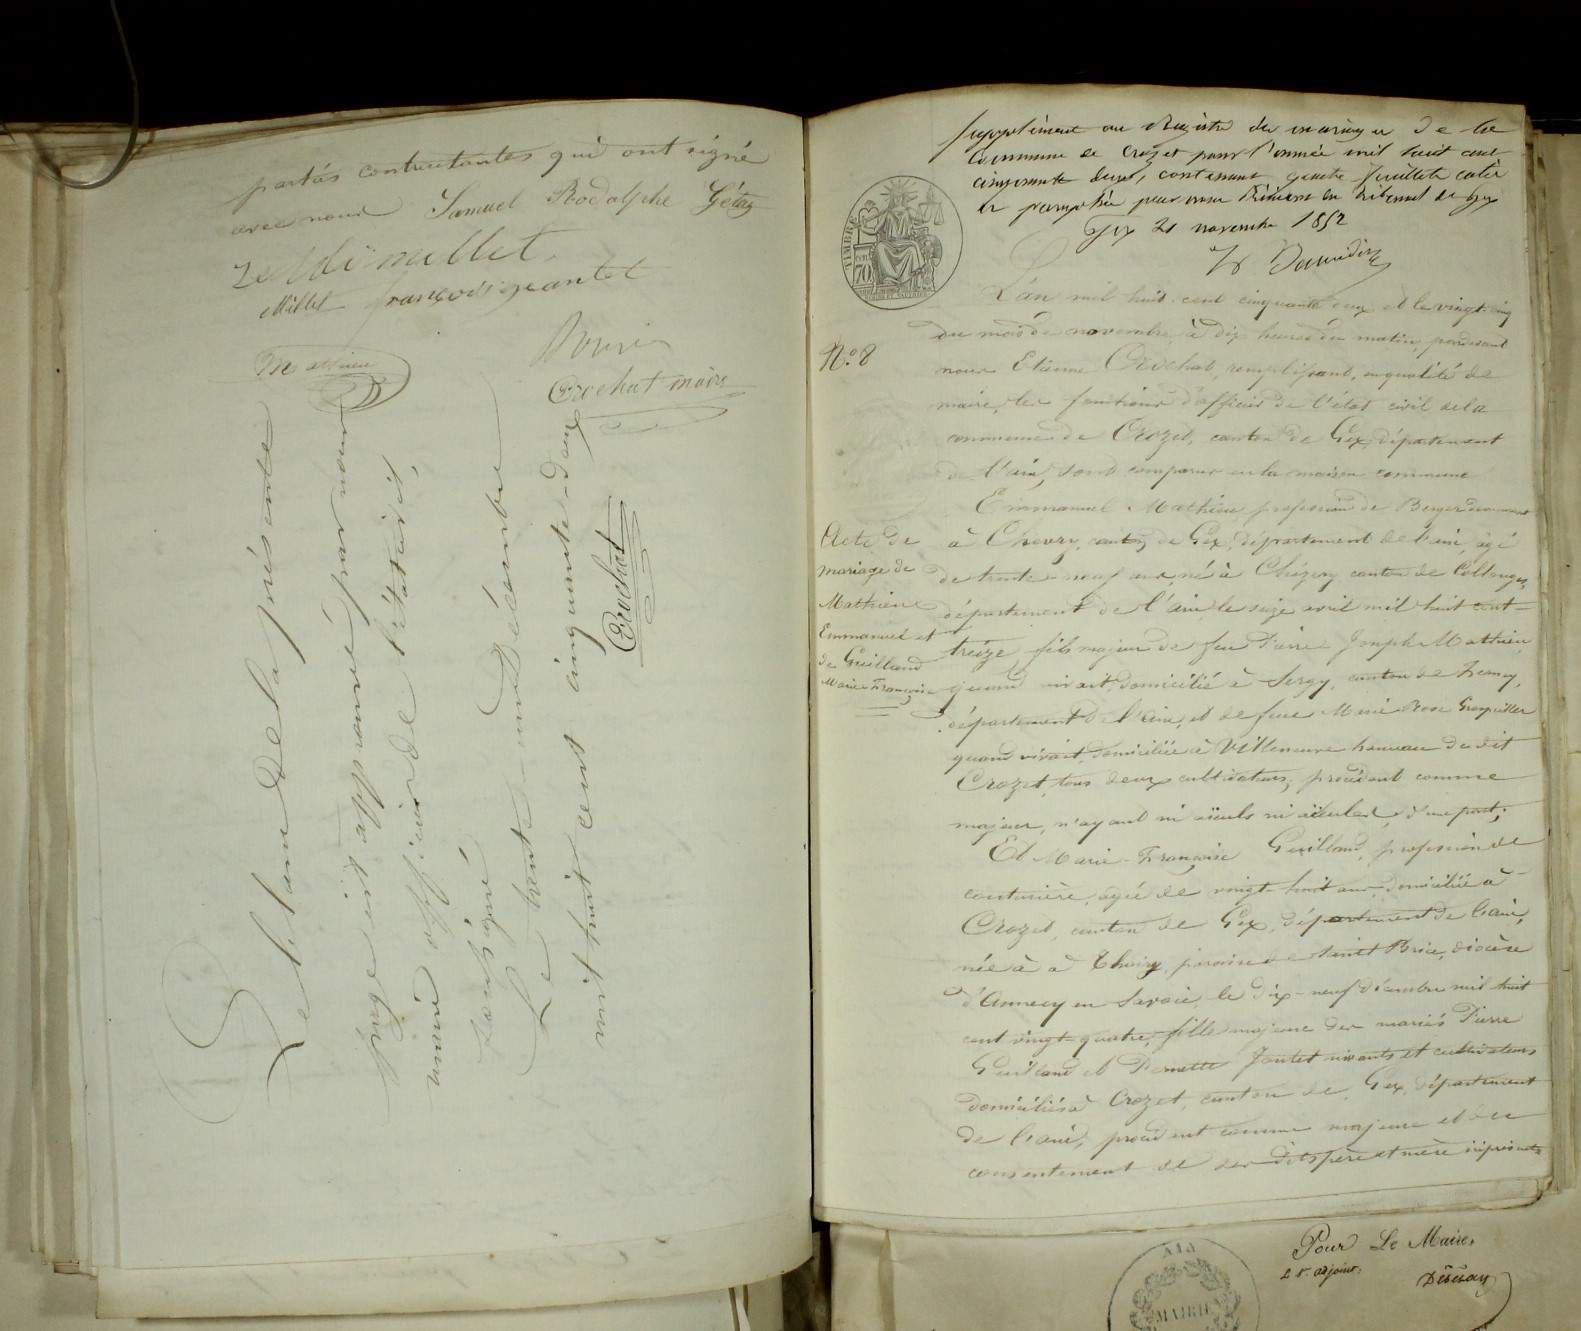 parties contractantes qui ont signé
avec nous Samuel Rodolphe Gétaz
millet
Millet françois jeantet
Mathieu
Crochat maire
Le blanc de la présente
page est approuvé par nous
maire officier de l'état civil
soussigné
Le trente-un décembre
mil huit cent cinquante-deux
Crochat
Supplément au Registre des mariages de la
Commune de Crozet pour l'année mil huit cent
cinquante deux, contenant quatre feuillets cotés
et paraphés par nous Président du tribunal de Gex
Gex 21 novembre 1852
TIMBRE
70
L'an mil huit cent cinquante deux et le vingt-cinq
du mois de novembre, à dix heures du matin, pardevant
N.° 8
nous Etienne Crochat, remplissant, en qualité de
maire, les fonctions d'officier de l'état civil de la
commune de Crozet, canton de Gex, département
de l'ain, sont comparus en la maison commune
Emmanuel Mathieu profession de Berger demeurant
à Chevry, canton de Gex, département de l'ain, âgé
de trente-neuf ans, né à Chézery canton de Collonges,
département de l'ain, le seize avril mil huit cent
treize, fils majeur de feu Pierre Joseph Mathieu,
quand vivait, domicilié à Sergy, canton de Ferney,
département de l'ain, et de feue Marie Rose
quand vivait, domiciliée à Villeneuve hameau du dit
Crozet, tous deux cultivateurs, procédant comme
majeur, n'ayant ni aïeuls ni aïeules, d'une part;
Acte de
mariage de
Mathieu
Emmanuel et
de Guilland
Marie-Françoise
Et Marie-Françoise Guilland, profession de
couturière, agée de vingt-huit ans, domiciliée à
Crozet, canton de Gex, département de l'ain,
née à à Thoiry, paroisse de Saint Brice, diocèse
d'Annecy en Savoie, le dix-neuf décembre mil huit
cent vingt-quatre, fille majeure des mariés Pierre
Guilland et Pernette Jantet vivants et cultivateurs
domiciliés à Crozet, canton de Gex, département
de l'ain, procédant comme majeure et du
consentement de ses dits père et mère ici présents
Pour Le Maire,
L'adjoint,
AIN
MAIRIE